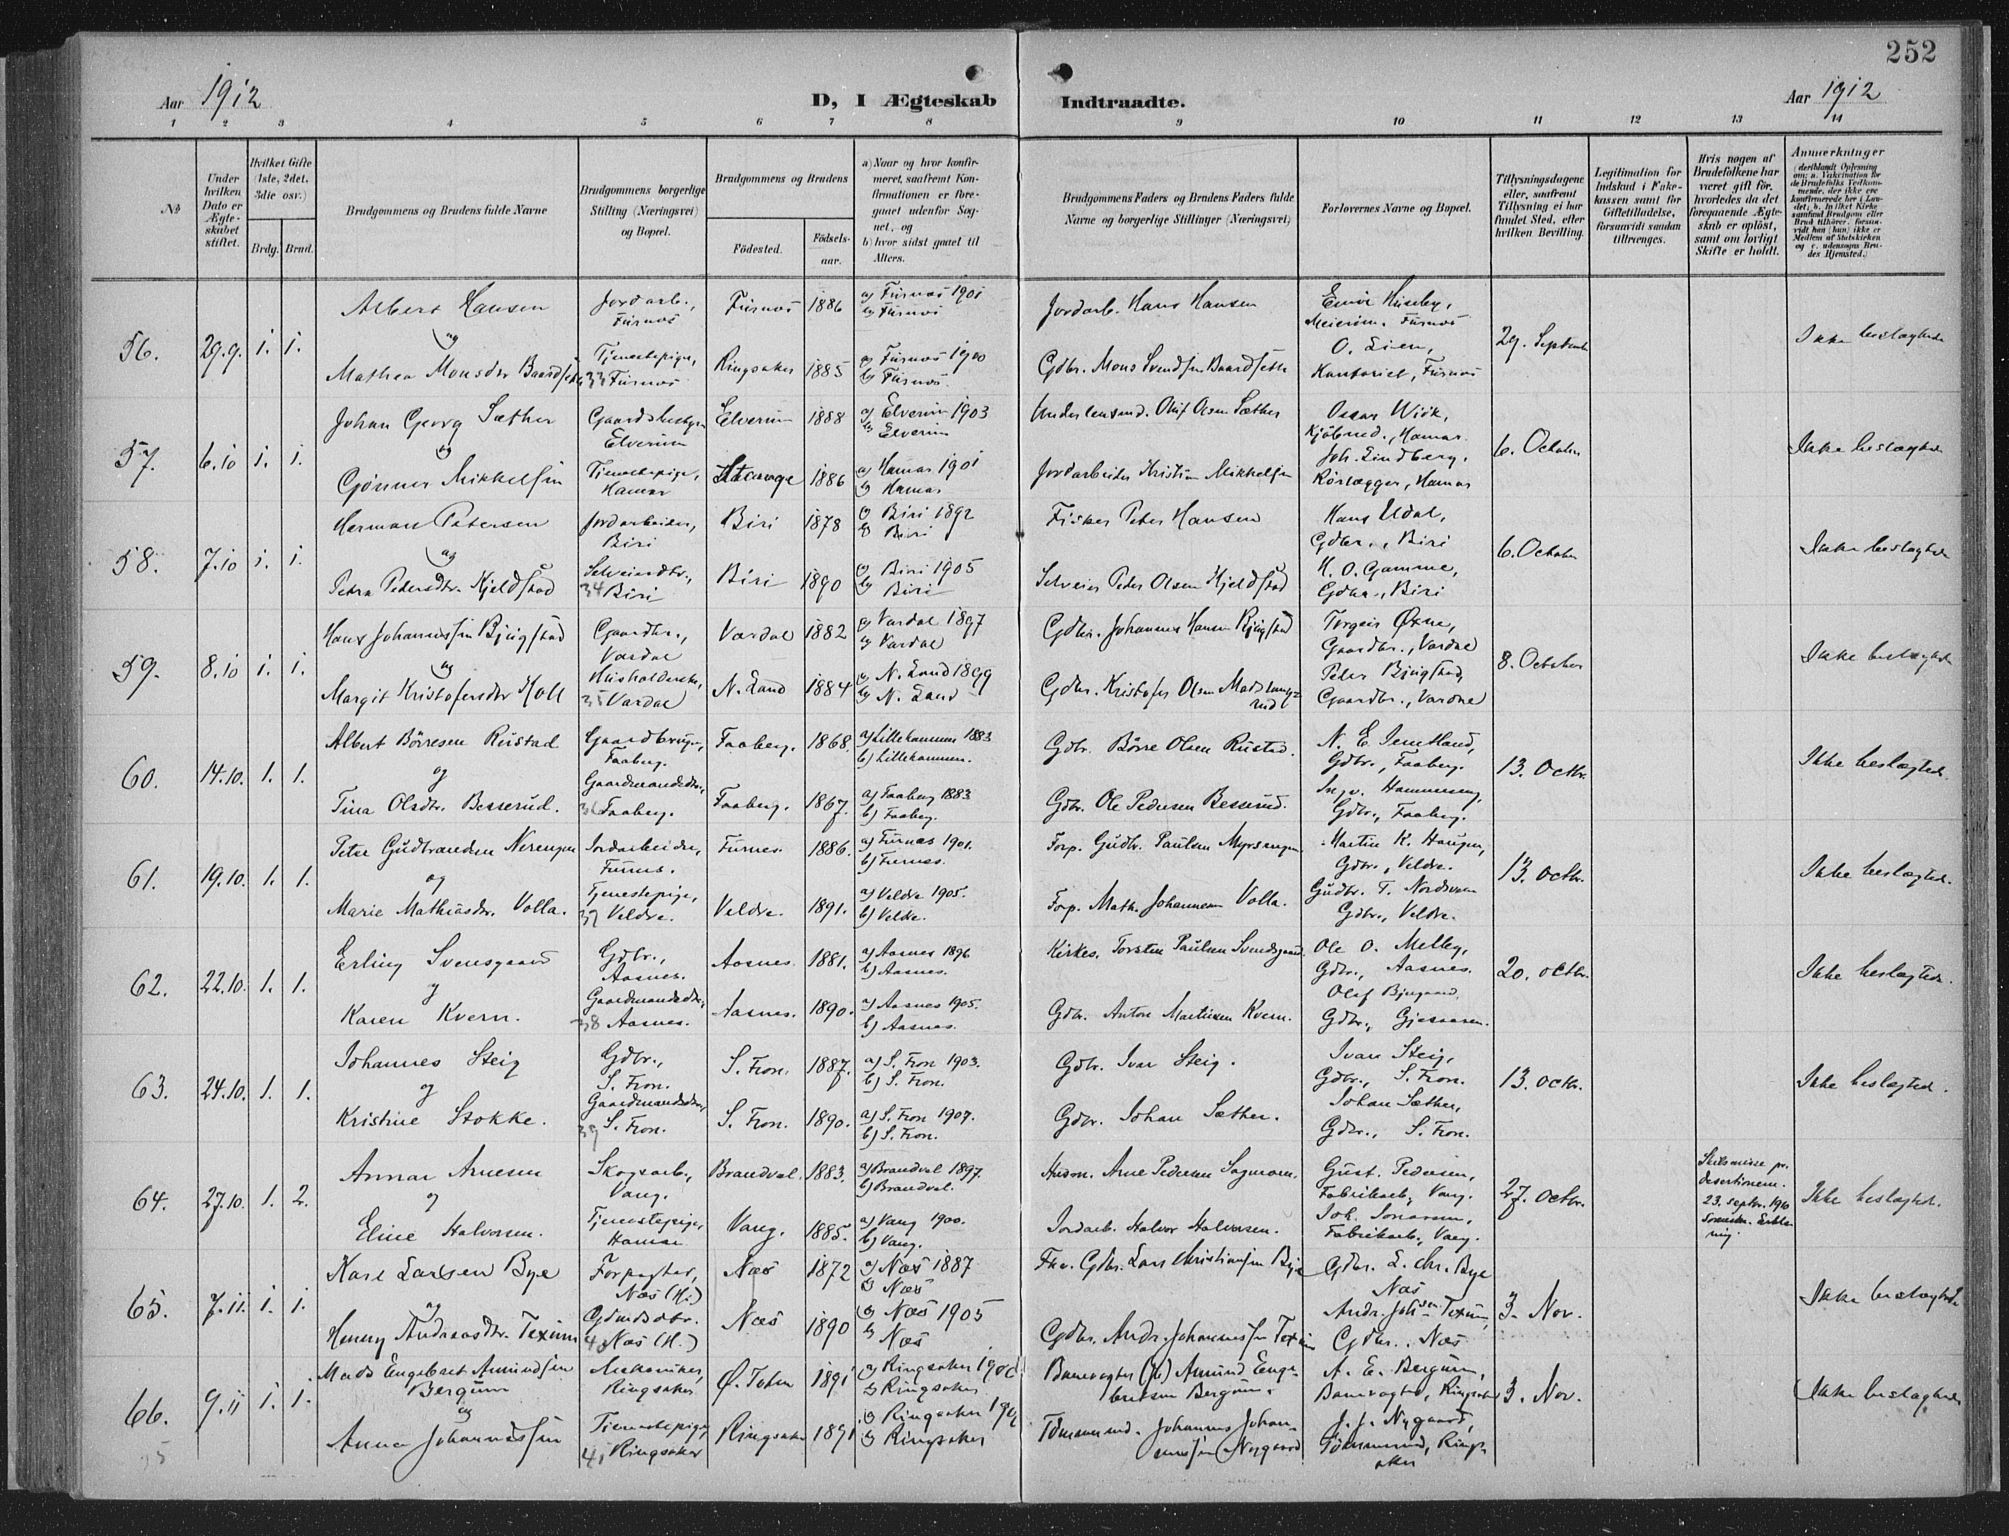 252
Aar 1912
D, I Ægteskab Indtraadte.
Aar 1912
1 2 3 4 5 6 7 8 9 10 11 12 13 14
No
Under hvilken Dato er Ægteskabet stiftet.
Hvilket Gifte (1ste, 2det, 3die osv.)
Brdg. Brud.
Brudgommens og Brudens fulde Navne
Brudgommens borgerlige Stilling (Næringsvei) og Bopæl.
Brudgommens og Brudens
Fødested. Fødselsaar.
a) Naar og hvor konfirmeret, saafremt Konfirmationen er foregaaet udenfor Sognet, og
b) hvor sidst gaaet til Alters.
Brudgommens Faders og Brudens Faders fulde Navne og borgerlige Stillinger (Næringsvei)
Forlovernes Navne og Bopæl.
Tillysningsdagene eller, saafremt Tillysning ei har fundet Sted, efter hvilken Bevilling.
Legitimation for Indskud i Enkekassen samt for Giftetilladelse, forsaavidt saadan tiltrænges.
Hvis nogen af Brudefolkene har været gift før, hvorledes da det foregaaende Ægteskab er opløst, samt om lovligt Skifte er holdt.
Anmærkninger
56. 29.9. 1. 1.
Albert Hansen
Jordarb., Furnes
Furnes 1886
a) Furnes 1901
b) Furnes
Jordarb. Hans Hansen
Meierim. Furnes
29. Septembr
Ikke beslægtede
og
Mathea Monsdtr Baardseth
Tjenestepige, 33 Furnes
Ringsaker 1885
a) Furnes 1900
b) Furnes.
Gdbr. Mons Svendsen Baardseth
O. Lien,
Kontorist, Furnes
57. 6.10 1. 1.
Johan Georg Sæther
Elverum
Elverum 1888
a) Elverum 1903
b) Elverum
Oluf Olsen Sæther
Oscar Wiik,
Hamar.
6. October
Ikke beslægtede
og
Mikkelsen
Tjenestepige, Hamar
1886
a) Hamar 1901
b) Hamar
Jordarbeider Kristian Mikkelsen
Joh. Lindberg,
Rørlægger, Hamar
58. 7.10 1. 1.
Herman Petersen
Jordarbeider, Biri
Biri 1878
a) Biri 1892
b) Biri
Fisker Peter Hansen
Hans Udal,
Gdbr., Biri
6. October
Ikke beslægtede
og
Petra Pedersdtr. Kjeldstad
Selveierdtr., 34 Biri
Biri 1890
a) Biri 1905
b) Biri
Selveier Peder Olsen Kjeldstad
H. O. Gamme,
Gdbr., Biri
59. 8.10 1. 1.
Hans Johannessen Bjugstad
Gaardbr., Vardal
Vardal 1882
a) Vardal 1897
b) Vardal
Gdbr. Johannes Hansen Bjugstad
Torgeir Øxne,
Gaardbr., Vardal
8. October
Ikke beslægtede
og
Margit Kristofersdtr Holl
Husholderske, 35 Vardal
N. Land 1884
a) N. Land 1899
b) N. Land
Gdbr. Kristofer Olsen
Peter Bjugstad,
Gaardbr., Vardal
60. 14.10. 1. 1.
Albert Børresen Rustad
Gaardbruger, Faaberg.
Faaberg. 1868.
a) Lillehammer 1883
b) Lillehammer.
Gdbr. Børre Olsen Rustad.
N. E. Jemtland,
Gdbr., Faaberg.
13. Octbr.
Ikke beslægtede.
og
Tina Olsdtr. Besserud.
Gaardmandsdtr., 36 Faaberg.
Faaberg. 1867.
a) Faaberg 1883
b) Faaberg.
Gdbr. Ole Pedersen Besserud.
Gdbr., Faaberg.
61. 19.10. 1. 1.
Peter Gudbrandsen Nerengen
Jordarbeider, Furnes.
Furnes. 1886.
a) Furnes 1901.
b) Furnes.
Forp. Gudbr. Paulsen Myrsengen
Martin K. Haugen,
Gdbr., Veldre.
13. Octbr.
Ikke beslægtede.
og
Marie Mathiasdtr. Volla.
Tjenestepige, 37 Veldre.
Veldre. 1891.
a) Veldre 1905.
b) Veldre.
Forp. Math. Johannesen Volla.
Gudbr. T. Nordsveen
Gdbr., Veldre.
62. 22.10. 1. 1.
Erling Svensgaard
Gdbr., Aasnes.
Aasnes. 1881.
a) Aasnes 1896
b) Aasnes.
Kirkes. Torsten Paulsen Svendsgaard
Ole O. Melby,
Gdbr., Aasnes.
20. Octbr.
Ikke beslægtede.
og
Karen Kvern.
Gaardmandsdtr., 38 Aasnes.
Aasnes. 1890.
a) Aasnes 1905.
b) Aasnes.
Gdbr. Anton Martinsen Kvern.
Olaf Bjugaard,
Gdbr., Gjesaasen.
63. 24.10. 1. 1.
Johannes Steig
Gdbr., S. Fron.
S. Fron. 1887.
a) S. Fron 1903.
b) S. Fron.
Gdbr. Ivar Steig.
Ivar Steig,
Gdbr., S. Fron.
13. Octbr.
Ikke beslægted.
og
Kristine Stokke.
Gaardmandsdtr., 39 S. Fron.
S. Fron. 1890.
a) S. Fron 1907.
b) S. Fron.
Gdbr. Johan Sæther.
Johan Sæther,
Gdbr., S. Fron.
64. 27.10. 1. 2.
Annar Arnesen
Skogsarb., Vang.
Brandval. 1883.
a) Brandval 1897.
b) Brandval.
Husm. Arne Pedersen Sagmoen.
Gust. Pedersen,
Fabrikarb., Vang.
27. Octbr.
Skilsmisse pr. desertionem. 23. septbr. 1910
Ikke beslægted.
og
Eline Halvorsen.
Tjenestepige, Hamar
Vang. 1885.
a) Vang 1900.
b) Vang.
Jordarb. Halvor Halvorsen.
Fabrikarb., Vang.
65. 7.11. 1. 1.
Karl Larsen Bye
Forpagter, Næs (H.)
Næs 1872
a) Næs 1887
b) Næs
Fhv. Gdbr. Lars Christiansen Bye
Gdbr. L. Chr. Bye
Næs
3. Nov.
Ikke beslægtede
og
Henny Andreasdtr. Texum
Gdmdsdtr. 40 Næs (H.)
Næs 1890
a) Næs 1905
b) Næs
Gdbr. Andr. Johannessen Texum
Andr. Johsen Texum,
Gdbr. Næs
66. 9.11 1. 1.
Mads Engebret Amundsen Bergum
Mekaniker, Ringsaker
Ø. Toten 1891
a) Ringsaker
b) Ringsaker
Banevogter Amund Engebretsen Bergum.
A. E. Bergum,
Banevogter, Ringsaker
3. Nov.
Ikke beslægtede
og
Anna Johannessen
Tjenestepige, 41 Ringsaker
Ringsaker 1891
a) Ringsaker
b) Ringsaker
Tømmermd. Johannes Johannessen Nygaard
J. J. Nygaard,
Tømmermd, Ringsaker